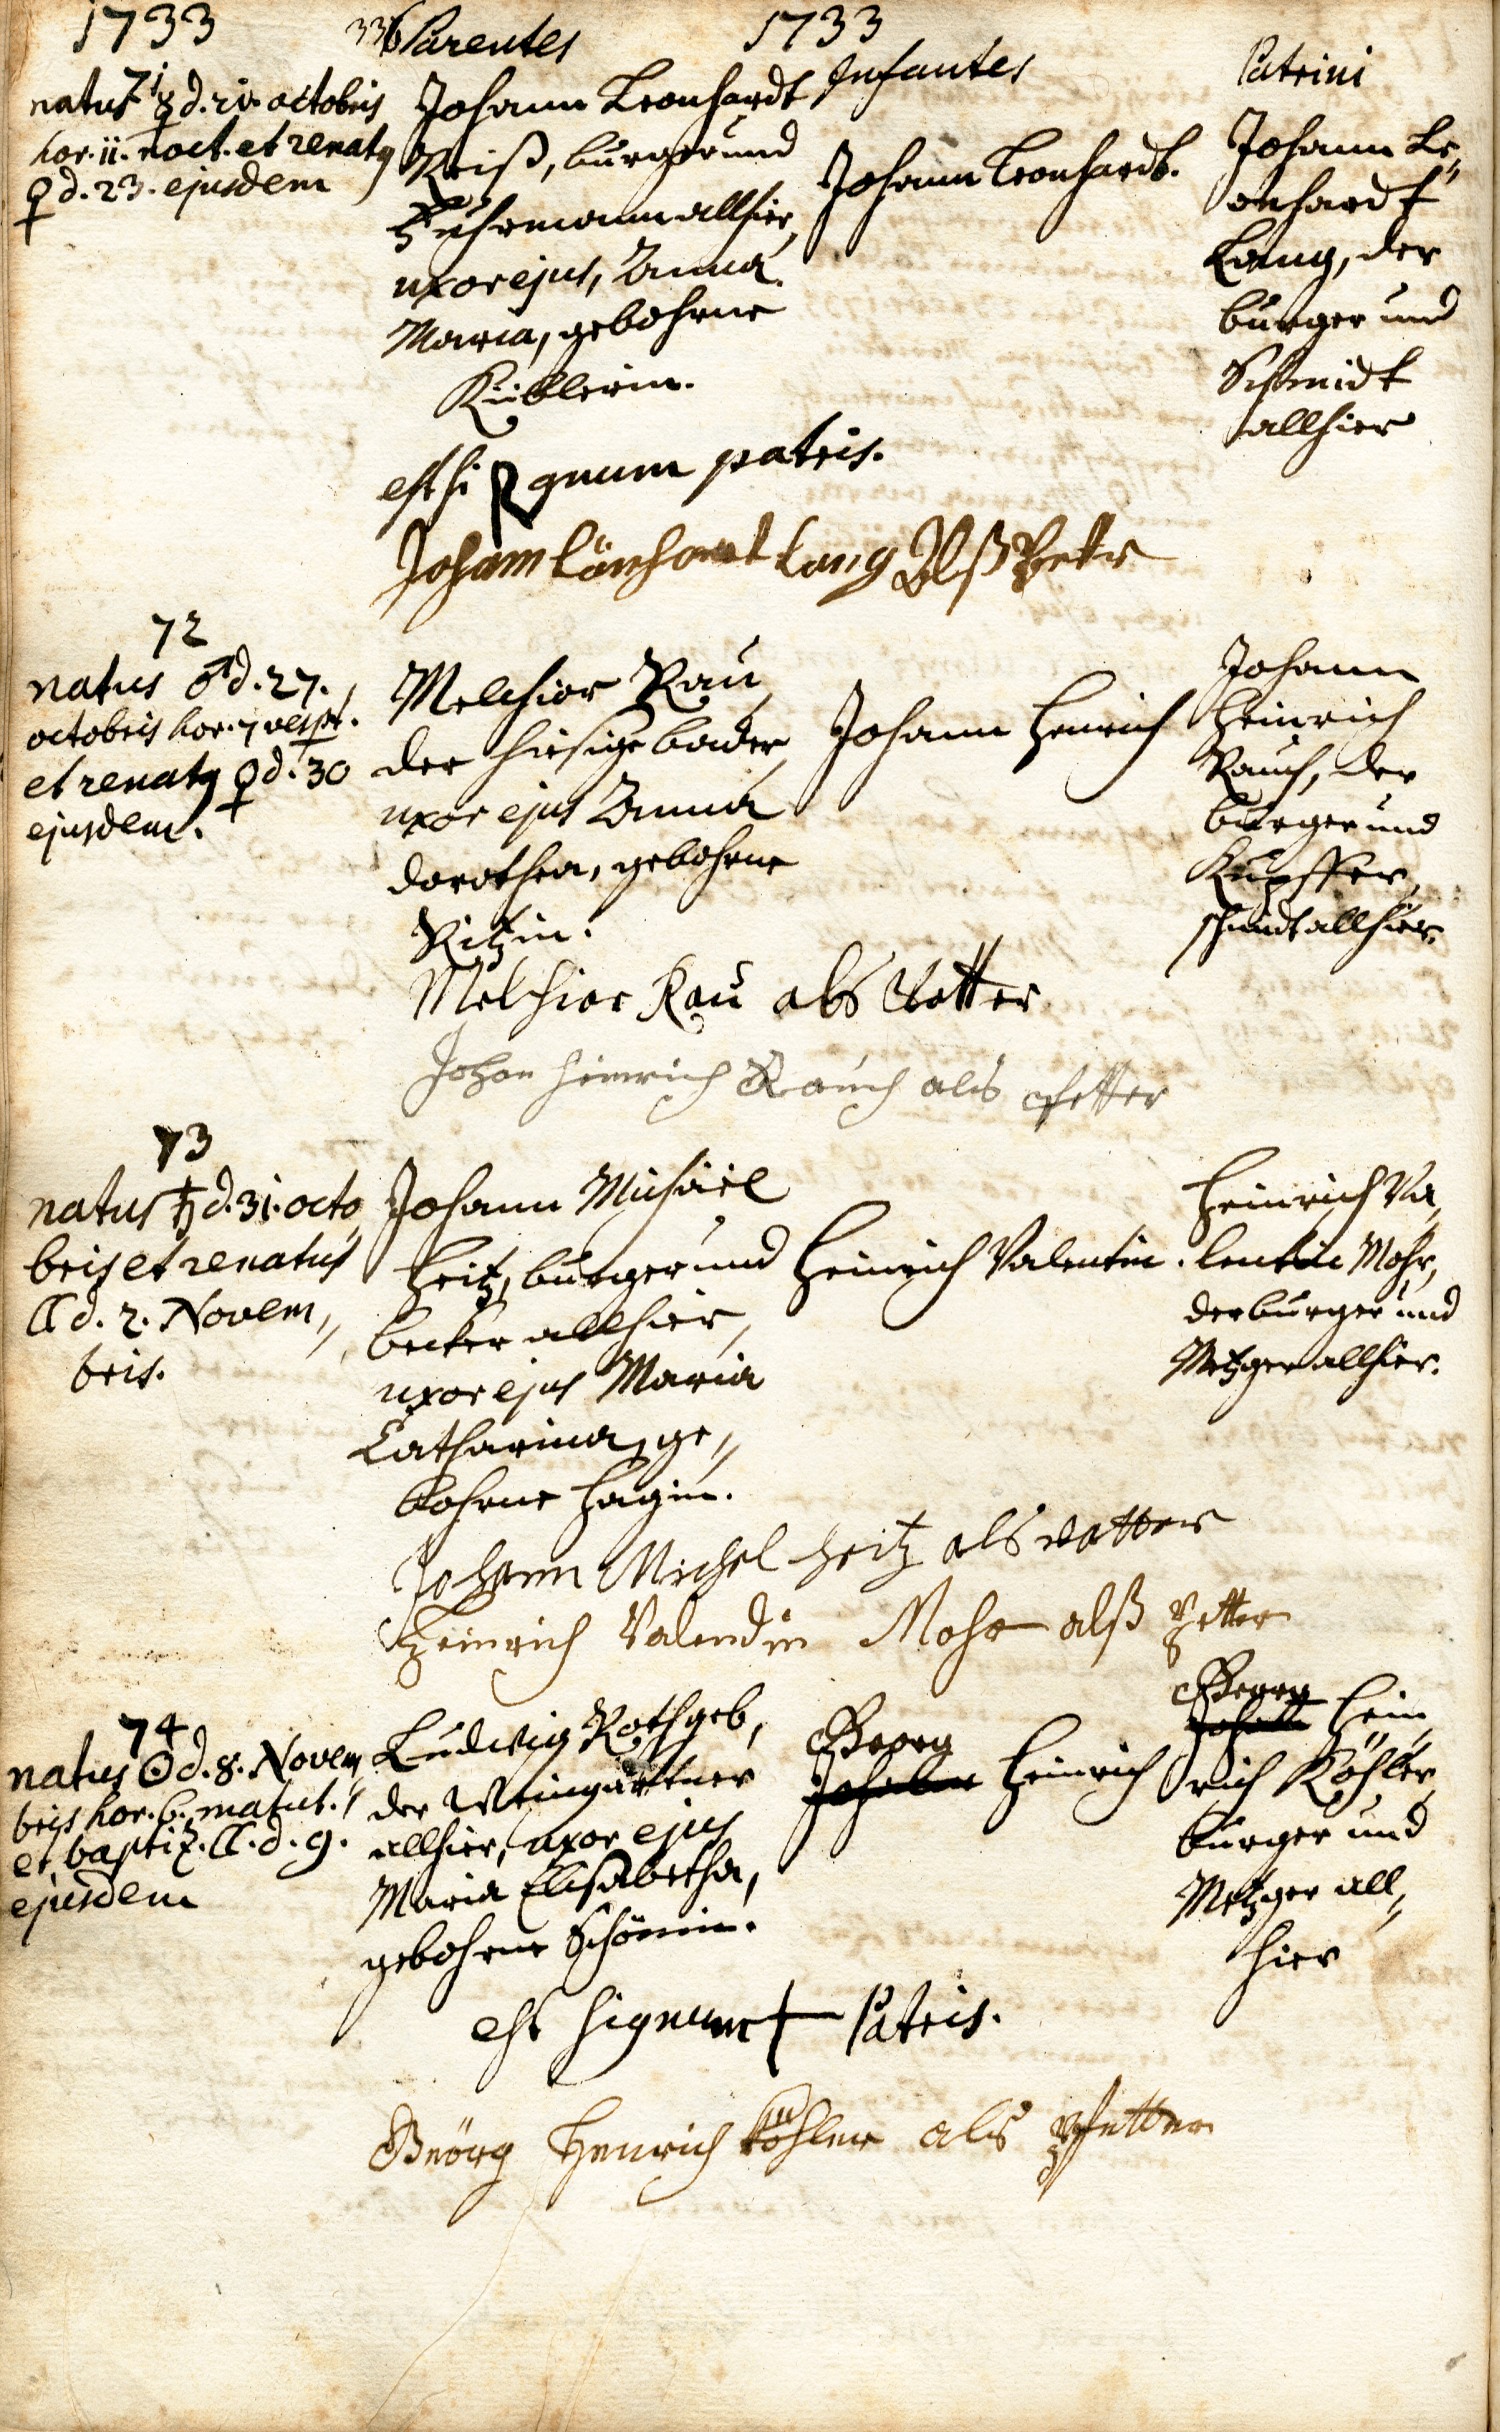 1733
336
Parentes
1733
Infantes
Patrini
71
natus ☿ d. 21. octobris
hor. 11. noct. et renatq
♀ d. 23. ejusdem
Johann Leonhardt
Reiß, burger und
Fuhrmann allhier,
uxor ejus, Anna
Maria, gebohrne
Küblerin.
Johann Leonhardt.
Johann Le„
onhardt
Lang, der
burger und
Schmidt
allhier
est si gnum patris.
Johann Lönhart Lang Alß Pettr
72
natus ♂ d. 27.
octobris hor. 7 vesp.
et renatq ♀ d. 30
ejusdem.
Melchior Rau,
der hiesige bader,
uxor ejus Anna
Dorothea, gebohrne
Ritzin.
Johann Henrich
Johann
Heinrich
Rauch, der
burger und
Kupffer,
schmidt allhier.
Melchior Rau als Vatter
Johan Heinrich Rauch als Pfetter
73
natus ♄ d. 31. octo
bris et renatus
☾ d. 2. Novem„
bris.
Johann Michael
Heitz, burger und
becker allhier,
uxor ejus Maria
Catharina, ge„
bohrne Hagin.
Heinrich Valentin.
Heinrich Va„
lentin Mohr,
der burger und
Metzger allhier.
Johann Michel Heitz als vatter
Heinrich Valendin Mohr alß Petter
74
natus ☉ d. 8. Novem
bris hor. 6. matut.
et baptiz. ☾. d. 9.
ejusdem
Ludwig Rothgeb,
der Weingärtner
allhier, uxor ejus
Maria Elisabetha,
gebohrne Schönin.
Georg
Johann Heinrich
Georg
Johann Hein„
rich Köhler,
burger und
Metzger all„
hier
est signum + Patris.
Geörg Henrich Köhler als Pfetter